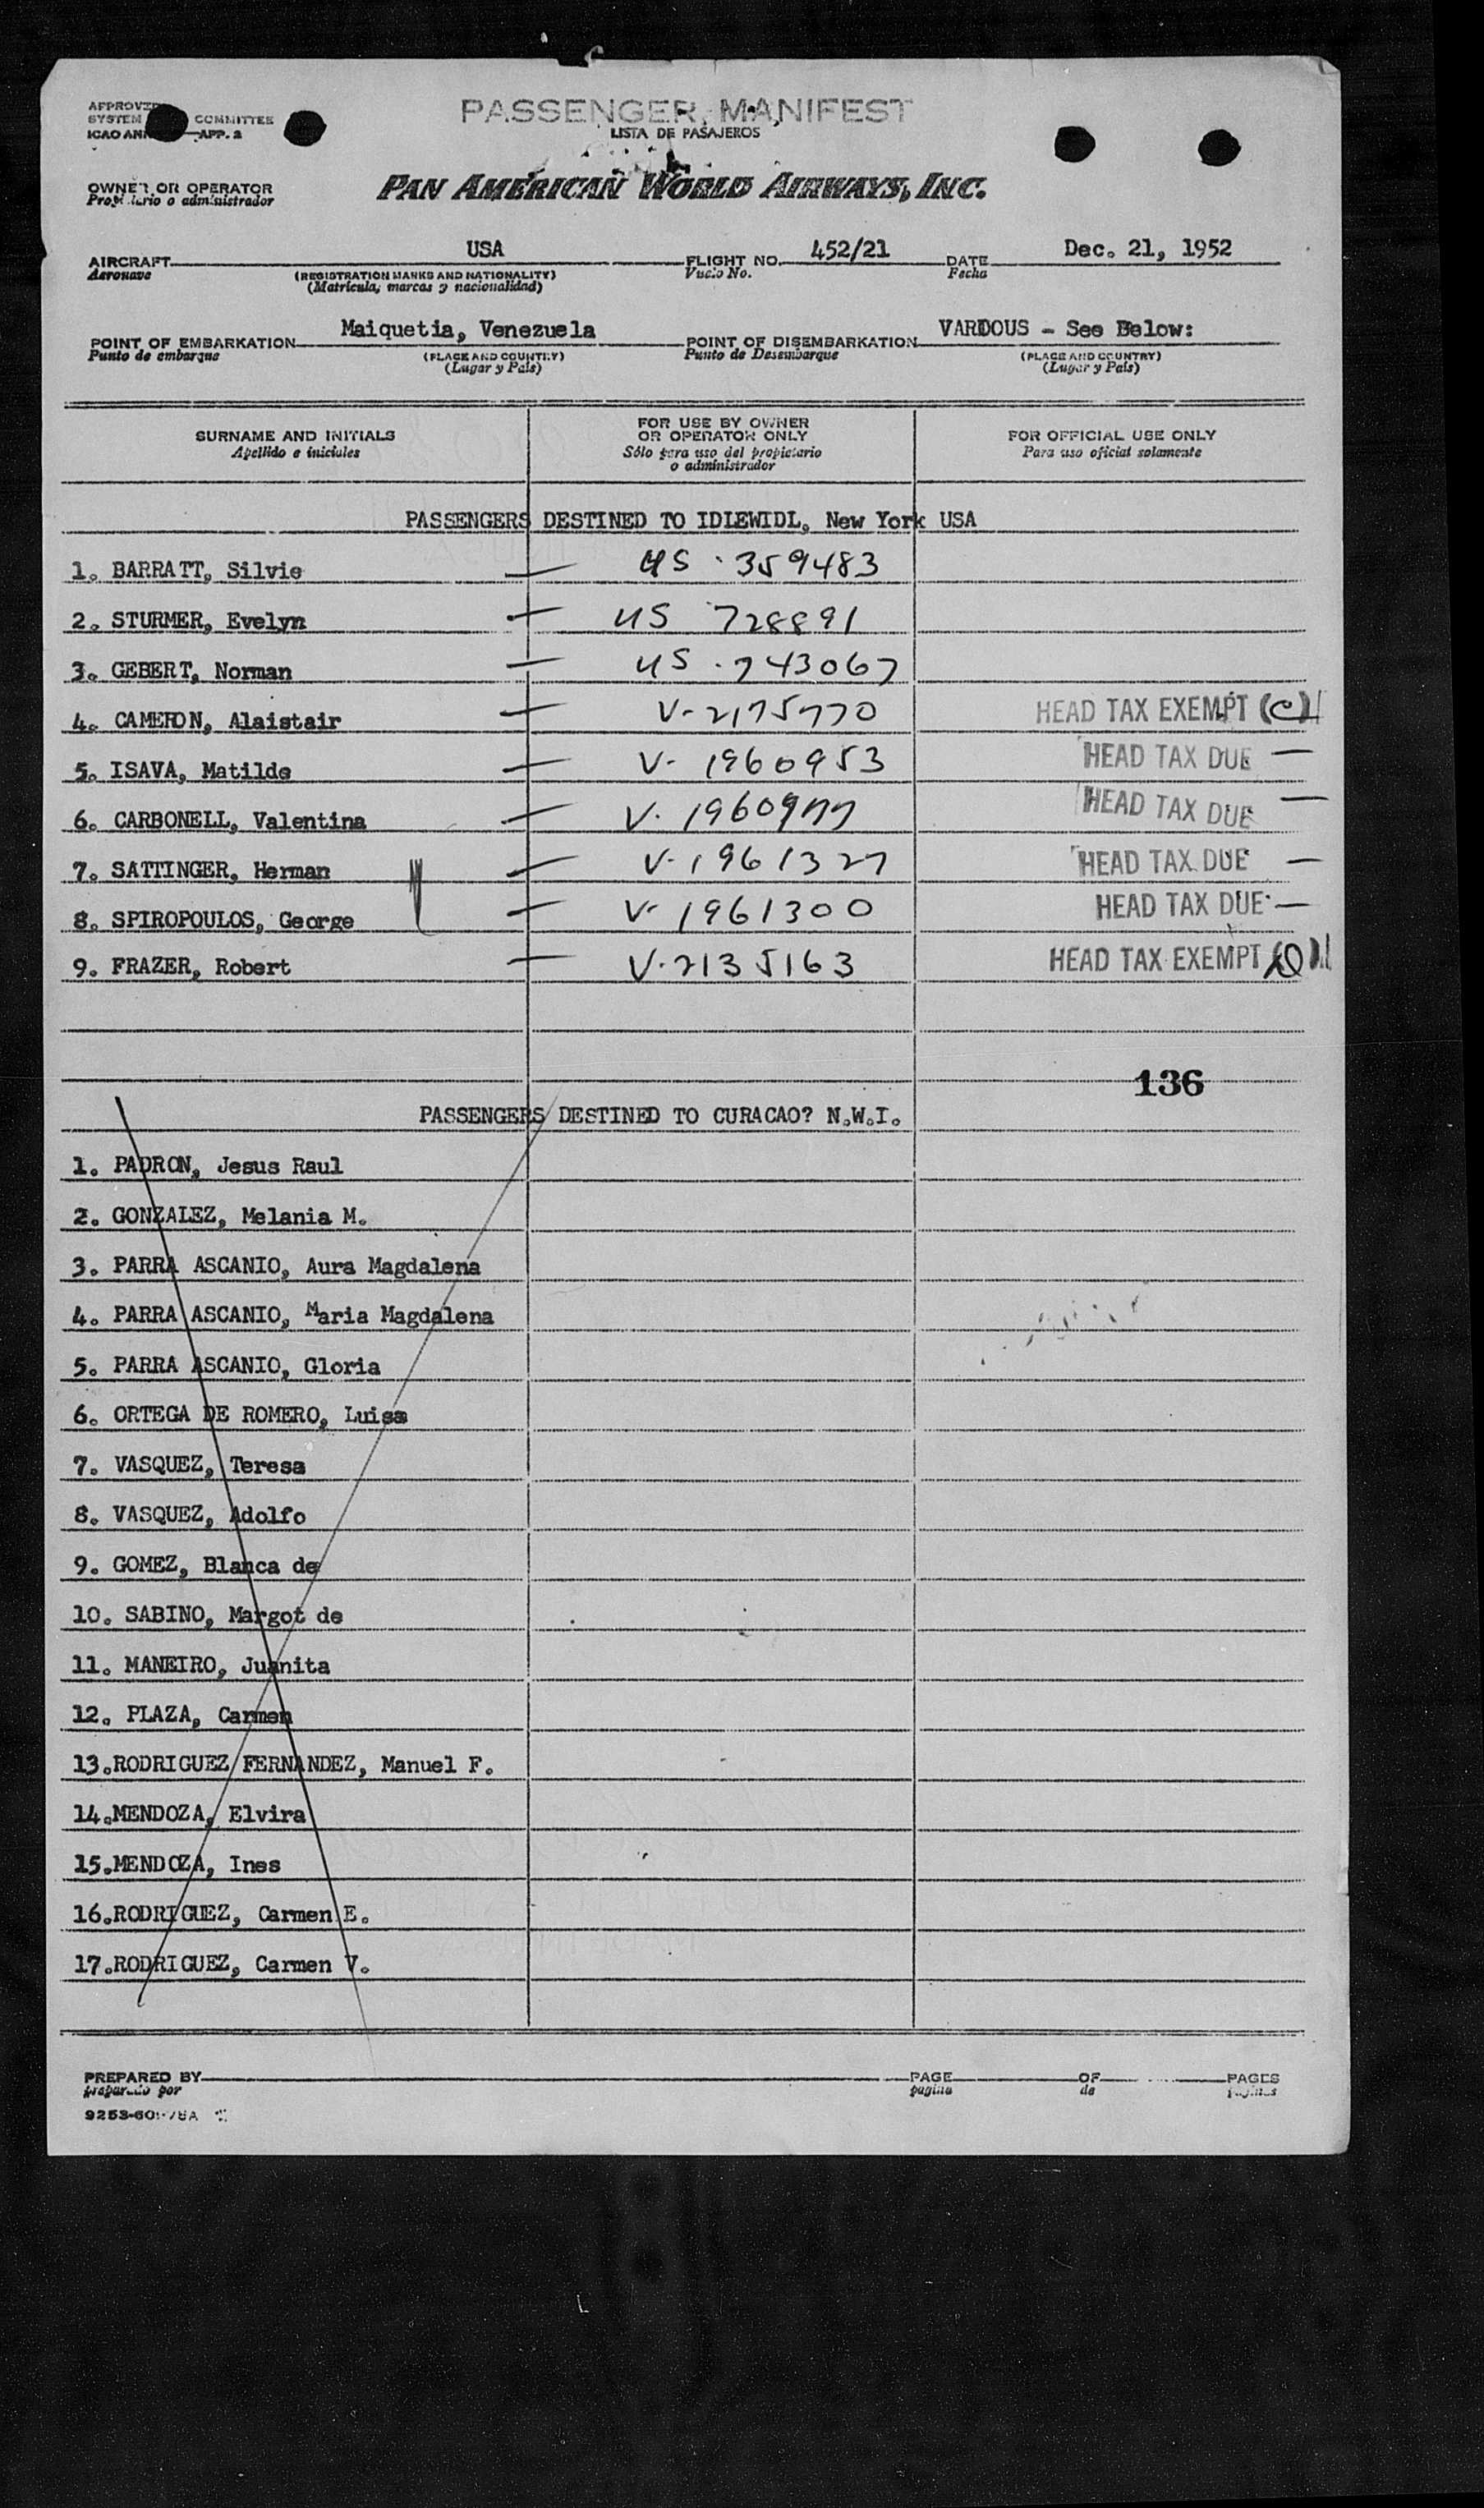 PASSENGER MANIFEST
LISTA DE PASAJEROS
APPROVED
SYSTEM COMMITTEE
ICAO APP. 2
OWNER OR OPERATOR
Propietario o administrador
PAN AMERICAN WORLD AIRWAYS, INC.
AIRCRAFT USA FLIGHT NO. 452/21 DATE Dec. 21, 1952
Aeronave (REGISTRATION MARKS AND NATIONALITY) Vuelo No. Fecha
(Matrícula, marcas y nacionalidad)
POINT OF EMBARKATION Maiquetia, Venezuela POINT OF DISEMBARKATION VARIOUS - See Below:
Punto de embarque (PLACE AND COUNTRY) Punto de Desembarque (PLACE AND COUNTRY)
(Lugar y País) (Lugar y País)
SURNAME AND INITIALS FOR USE BY OWNER OR OPERATOR ONLY FOR OFFICIAL USE ONLY
Apellido e iniciales Sólo para uso del propietario o administrador Para uso oficial solamente
PASSENGERS DESTINED TO IDLEWIDL, New York USA
1. BARRATT, Silvie — US. 359483
2. STURMER, Evelyn — US 728891
3. GEBERT, Norman — US. 743067
4. CAMERON, Alaistair — V-2175770 HEAD TAX EXEMPT (C)
5. ISAVA, Matilde — V- 1960953 HEAD TAX DUE —
6. CARBONELL, Valentina — V. 1960977 HEAD TAX DUE —
7. SATTINGER, Herman — V-1961327 HEAD TAX DUE —
8. SPIROPOULOS, George — V- 1961300 HEAD TAX DUE —
9. FRAZER, Robert — V.2135163 HEAD TAX EXEMPT (D)
136
PASSENGERS DESTINED TO CURACAO? N.W.I.
1. PADRON, Jesus Raul
2. GONZALEZ, Melania M.
3. PARRA ASCANIO, Aura Magdalena
4. PARRA ASCANIO, Maria Magdalena
5. PARRA ASCANIO, Gloria
6. ORTEGA DE ROMERO, Luisa
7. VASQUEZ, Teresa
8. VASQUEZ, Adolfo
9. GOMEZ, Blanca de
10. SABINO, Margot de
11. MANEIRO, Juanita
12. PLAZA, Carmen
13.RODRIGUEZ FERNANDEZ, Manuel F.
14.MENDOZA, Elvira
15.MENDOZA, Ines
16.RODRIGUEZ, Carmen E.
17.RODRIGUEZ, Carmen V.
PREPARED BY PAGE OF PAGES
preparado por pagina de paginas